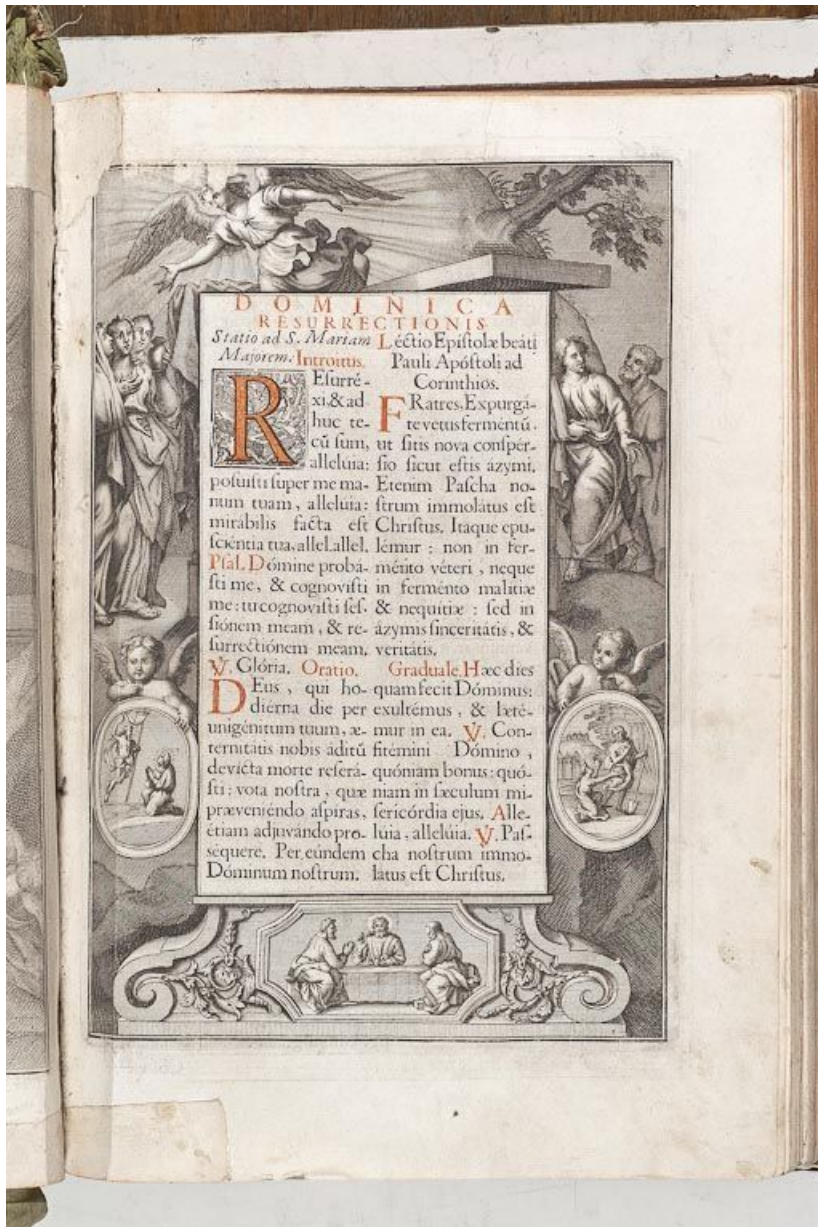 DOMINICA
RESURRECTIONIS
Statio ad S. Mariam
Majorem. Introitus.
REsurré-
xi, & ad
huc te-
cũ sum,
alleluia:
posuisti super me ma-
num tuam, alleluia:
mirábilis facta est
sciéntia tua, allel. allel.
Psal. Dómine probá-
sti me, & cognovisti
me: tu cognovisti ses-
siónem meam, & re-
surrectiónem meam.
℣. Glória. Oratio.
DEus, qui ho-
dierna die per
unigénitum tuum, æ-
ternitátis nobis áditũ
devicta morte reserá-
sti: vota nostra, quæ
præveniéndo aspiras,
étiam adjuvándo pro-
séquere. Per eúndem
Dóminum nostrum.
Léctio Epistolæ beáti
Pauli Apóstoli ad
Corinthios.
FRatres, Expurgá-
te vetus ferméntũ,
ut sitis nova conspér-
sio sicut estis ázymi.
Etenim Pascha no-
strum immolátus est
Christus. Itaque epu-
lémur: non in fer-
ménto véteri, neque
in ferménto malítiæ
& nequítiæ: sed in
ázymis sinceritátis, &
veritátis.
Graduale. Hæc dies
quam fecit Dóminus:
exultémus, & læté-
mur in ea. ℣. Con-
fitémini Dómino,
quóniam bonus: quó-
niam in sæculum mi-
sericórdia ejus. Alle-
lúia, allelúia. ℣. Pas-
cha nostrum immo-
latus est Christus.